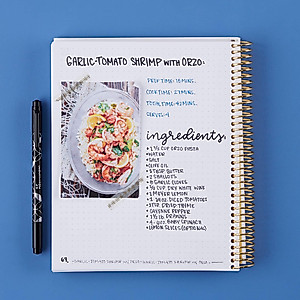 GARLIC-TOMATO SHRIMP WITH ORZO:
PREP TIME: 15 MINS.
COOK TIME: 27 MINS.
TOTAL TIME: 42 MINS.
SERVES: 4
ingredients:
• 1 1/2 CUP ORZO PASTA
• WATER
• SALT
• OLIVE OIL
• 5 TBSP BUTTER
• 2 SHALLOTS
• 4 GARLIC CLOVES
• 1/2 CUP DRY WHITE WINE
• 1 MEYER LEMON
• DICED TOMATOES
• DRIED THYME
• CAYENNE PEPPER
• 1 LB PRAWNS
• BABY SPINACH
• LEMON SLICES (OPTIONAL)